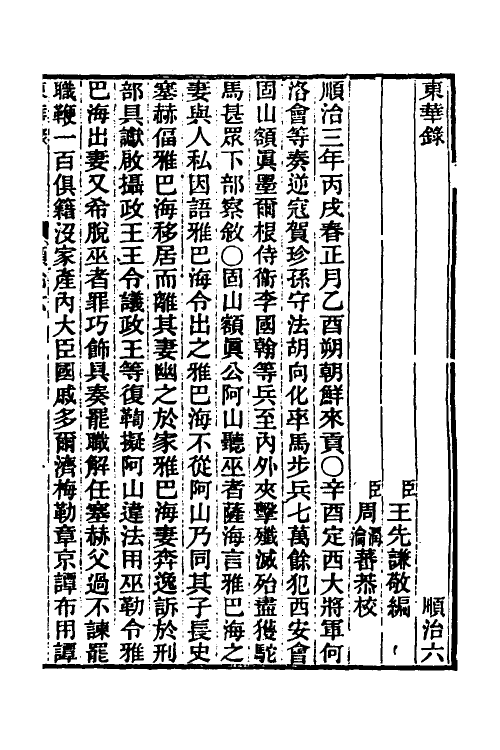 東華錄　順治六
臣王先謙敬編
臣周潤蕃周瀹蕃恭校
順治三年丙戌春正月乙酉朔朝鮮來貢〇辛酉定西大將軍何
洛會等奏逆寇賀珍孫守法胡向化率馬步兵七萬餘犯西安會
固山額眞墨爾根侍衞李國翰等兵至內外夾擊殲滅殆盡獲駝
馬甚眾下部察敘〇固山額眞公阿山聽巫者薩海言雅巴海之
妻與人私因語雅巴海令出之雅巴海不從阿山乃同其子長史
塞赫偪雅巴海移居而離其妻幽之於家雅巴海妻奔逸訴於刑
部具讞啟攝政王王令議政王等復鞫擬阿山違法用巫勒令雅
巴海出妻又希脫巫者罪巧飾具奏罷職解任塞赫父過不諫罷
職鞭一百俱籍沒家產內大臣國戚多爾濟梅勒章京譚布用譚